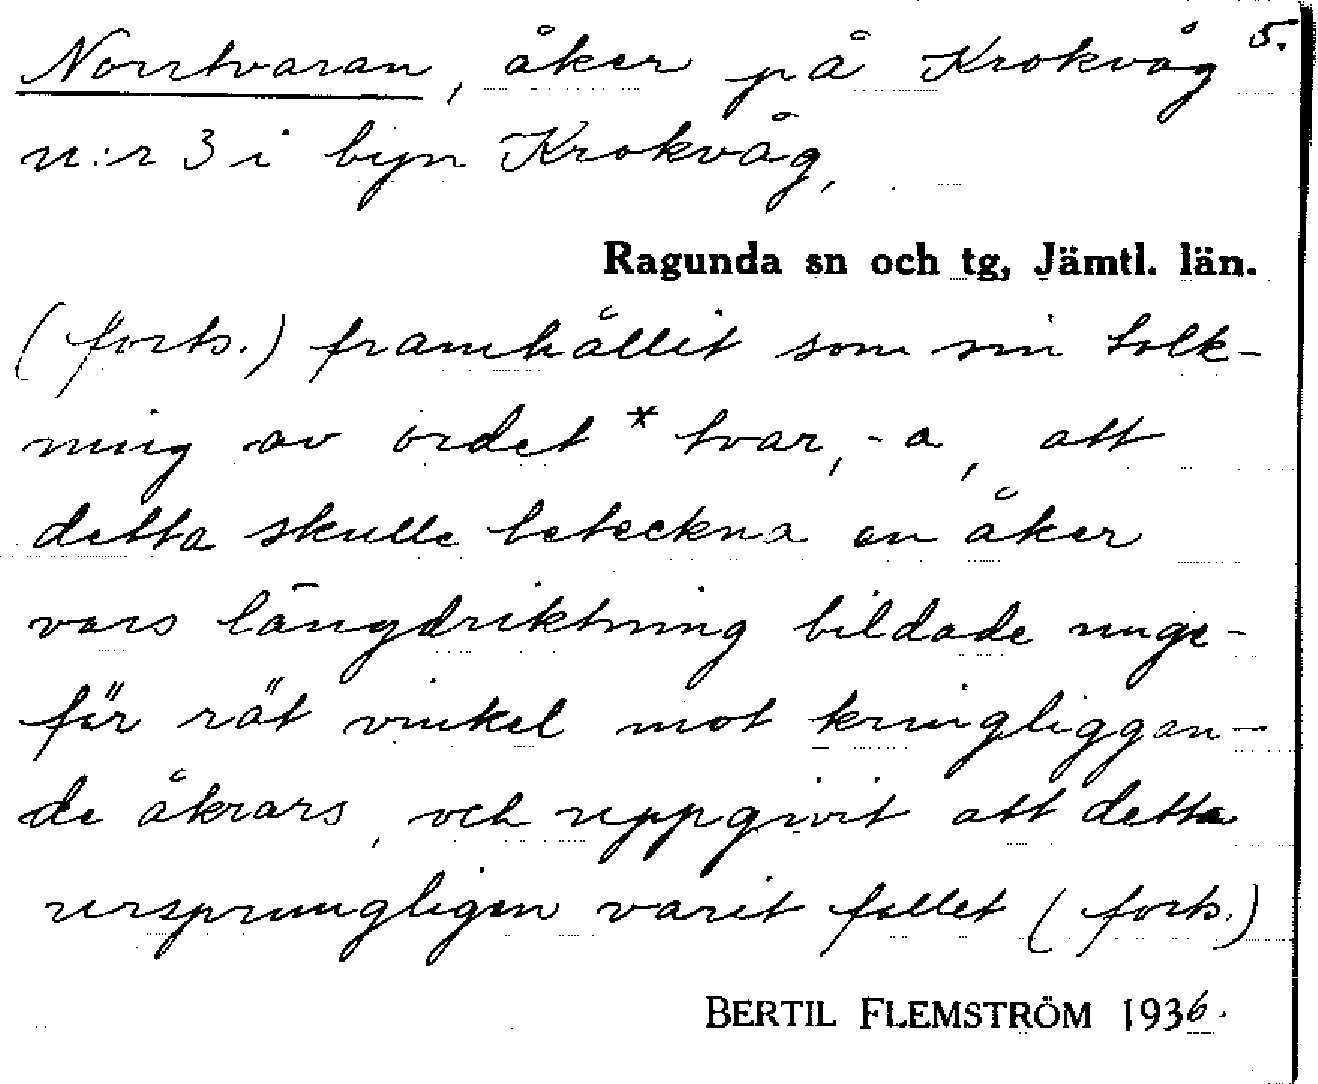 Norrtvaran, åker på Krokvåg 5.
n:r 3 i byn Krokvåg,
Ragunda sn och tg, Jämtl. län.
(forts.) framhållit som sin tolk-
ning av ordet *tvar, -a, att
detta skulle beteckna en åker
vars längdriktning bildade unge-
fär rät vinkel mot kringliggan-
de åkrars, och uppgivit att detta
ursprungligen varit fallet (forts.)
BERTIL FLEMSTRÖM 1936.